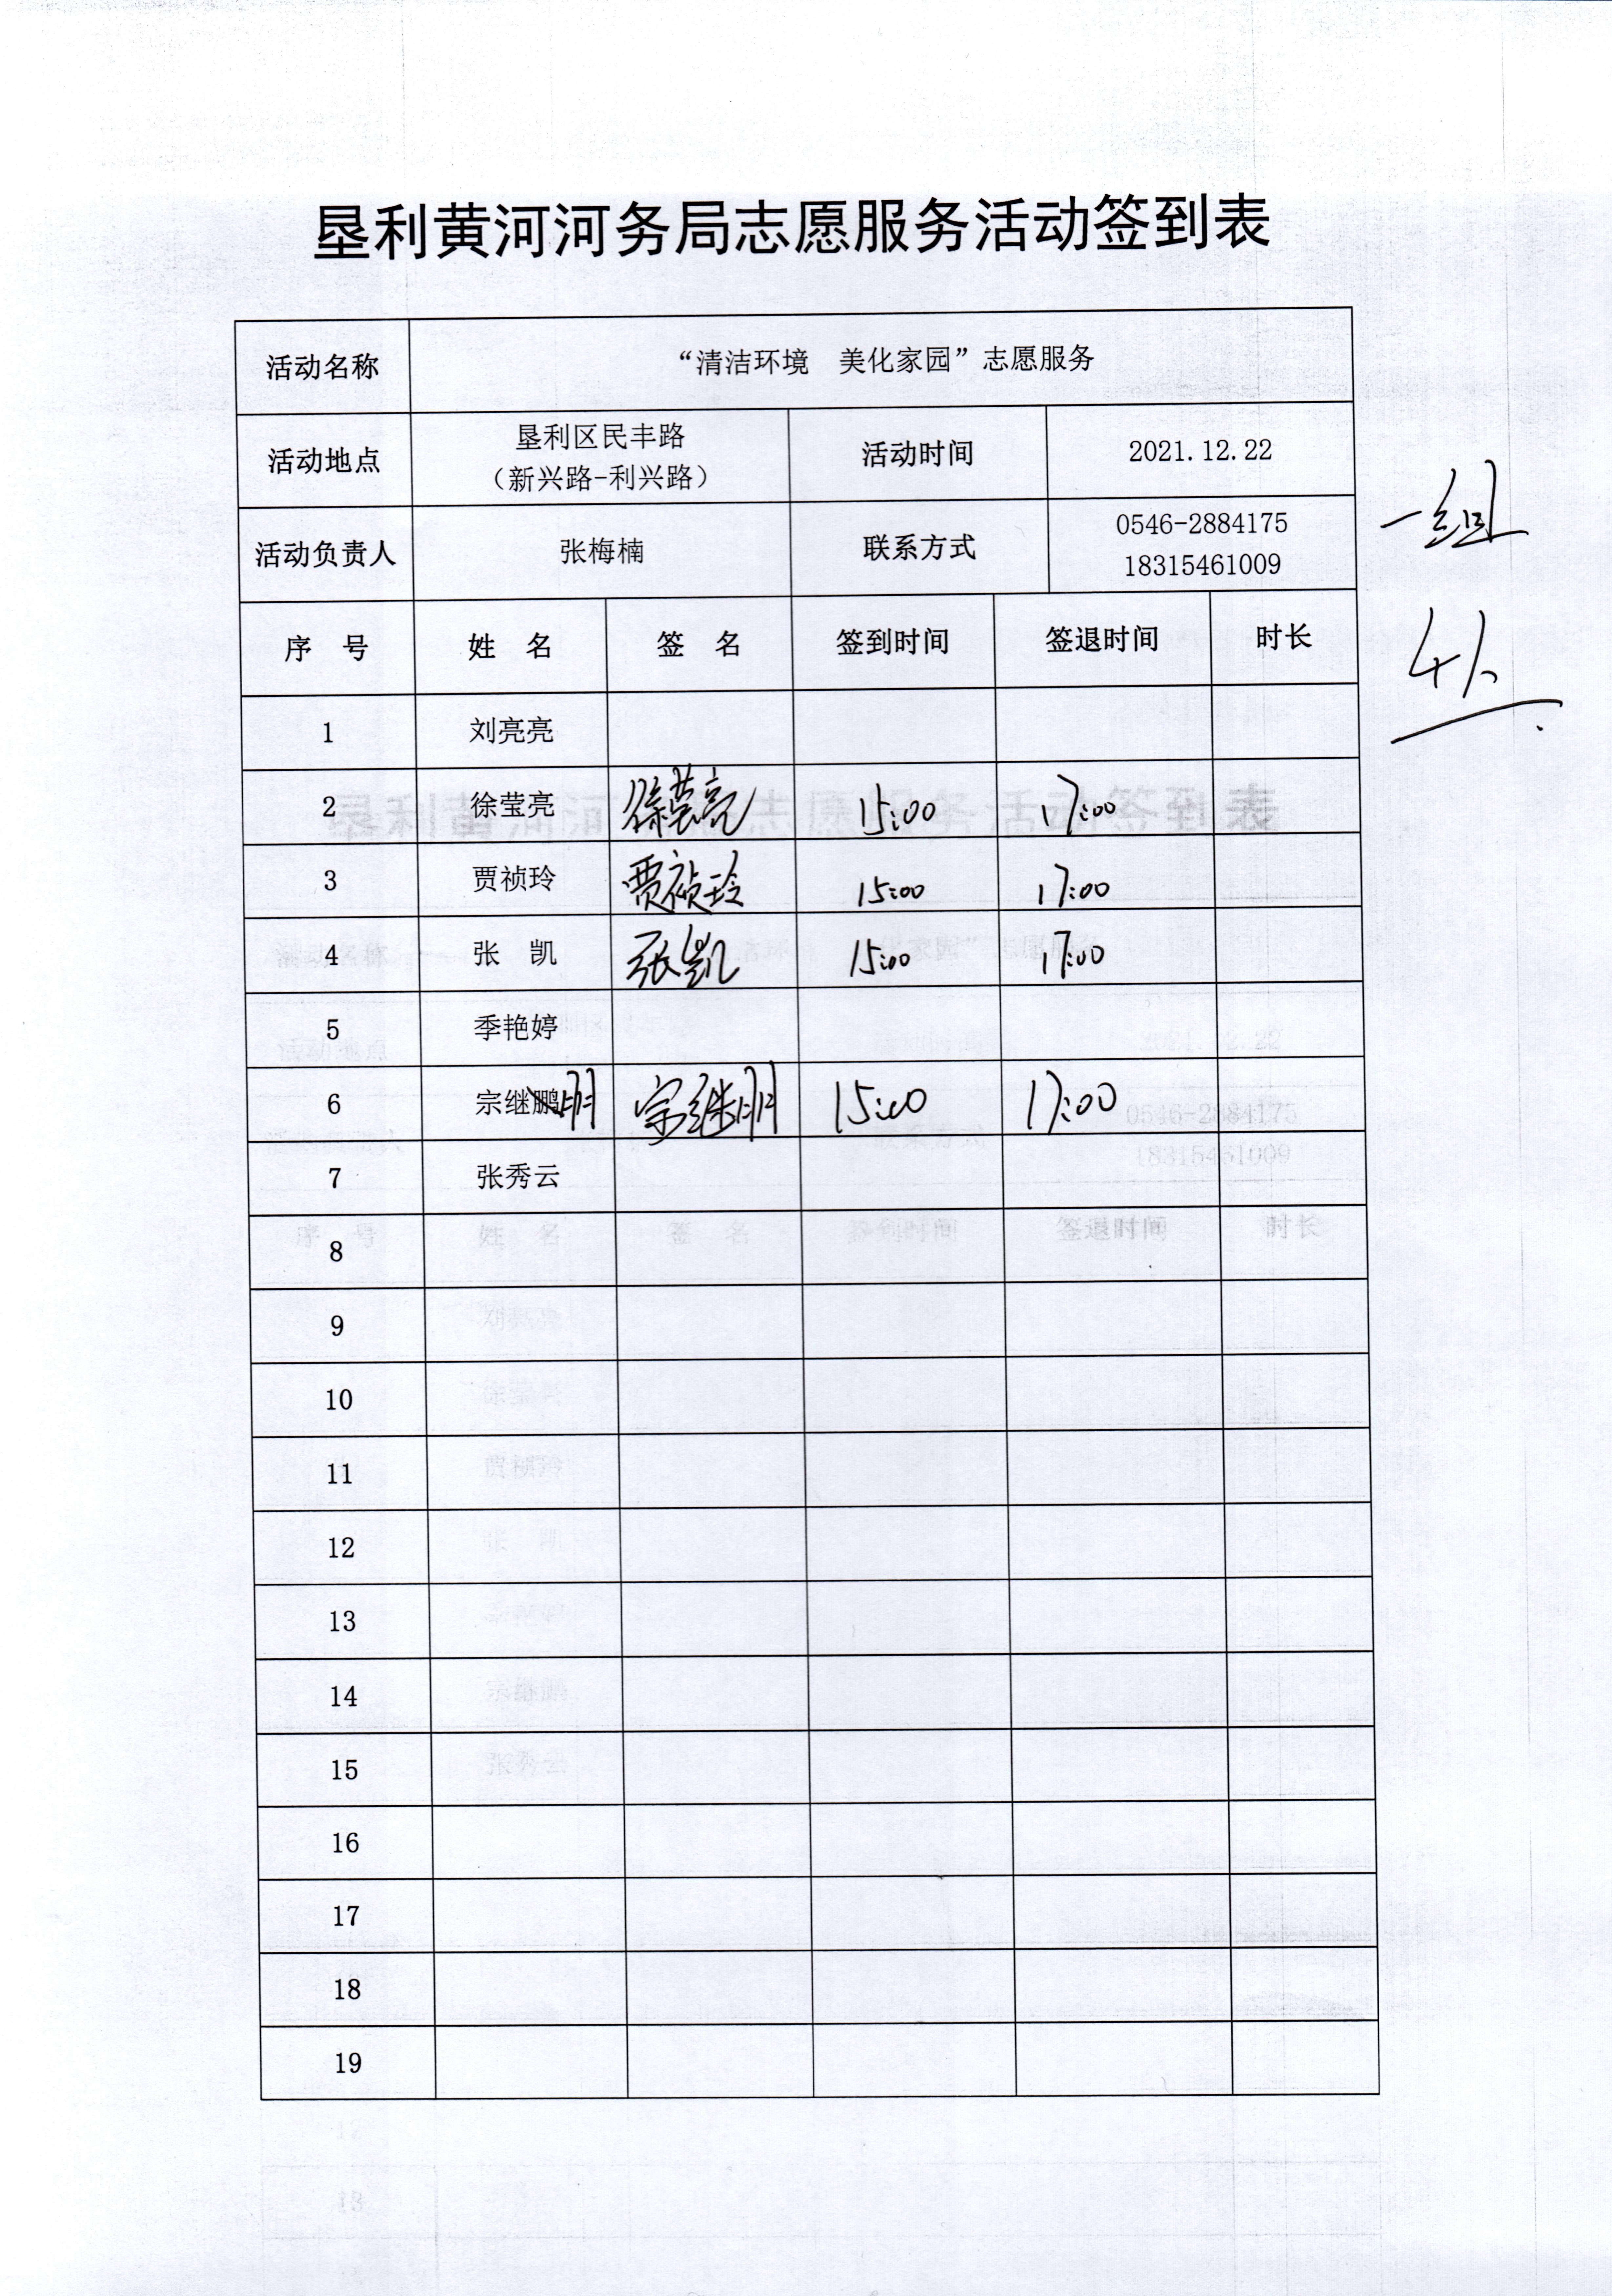 垦利黄河河务局志愿服务活动签到表
活动名称 “清洁环境 美化家园”志愿服务
活动地点 垦利区民丰路 （新兴路-利兴路） 活动时间 2021.12.22
活动负责人 张梅楠 联系方式 0546-2884175 18315461009
一组
4人
序 号 姓 名 签 名 签到时间 签退时间 时长
1 刘亮亮
2 徐莹亮 徐莹亮 15:00 17:00
3 贾祯玲 贾祯玲 15:00 17:00
4 张 凯 张凯 15:00 17:00
5 季艳婷
6 宗继鹏 明 宗继明 15:00 17:00
7 张秀云
8
9
10
11
12
13
14
15
16
17
18
19